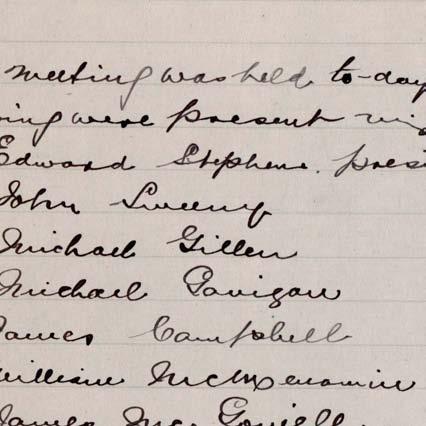 meeting was held to-day
ing were present viz
Edward Stephens. presi
John Sweeny
Michael Gillen
Michael Gavigan
James Campbell
William McMenamin
James Mc Gonigle